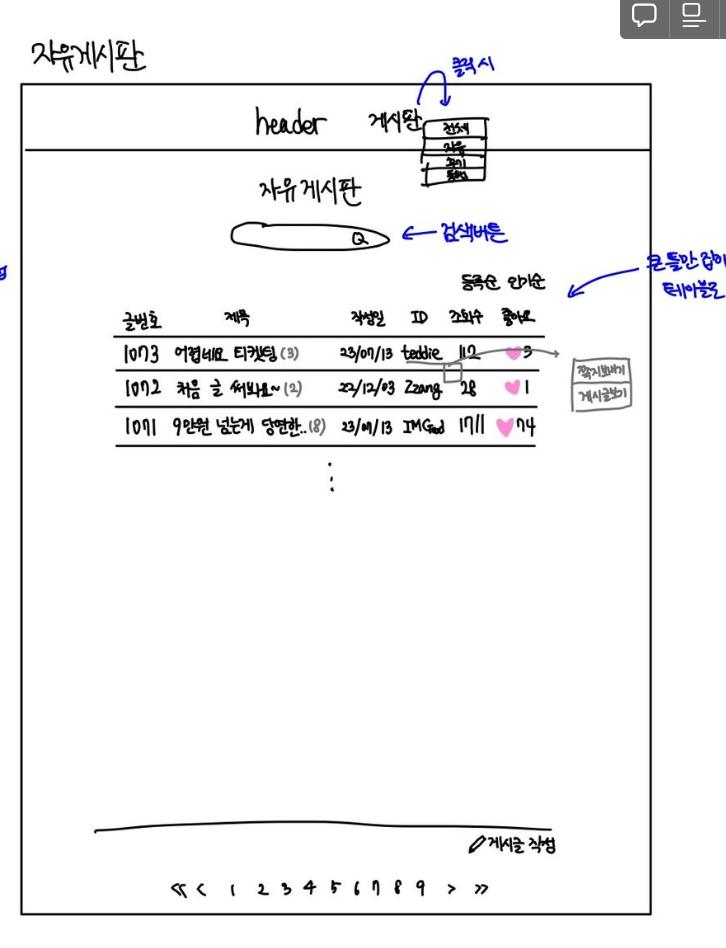 자유게시판
클릭시
header 게시판
전체
자유
후기
자유게시판
검색버튼
큰 틀만 잡아
테이블로
등록순 인기순
글번호 제목 작성일 ID 조회수 좋아요
1073 어렵네요 티켓팅 (3) 23/07/13 teddie 112 ♥3
1072 처음 글 써봐요~ (2) 22/12/03 Zzang 28 ♥1
1071 9만원 넘는게 당연한.. (8) 23/07/13 IMGod 1711 ♥74
쪽지보내기
게시글보기
게시글 작성
≪ < 1 2 3 4 5 6 7 8 9 > ≫